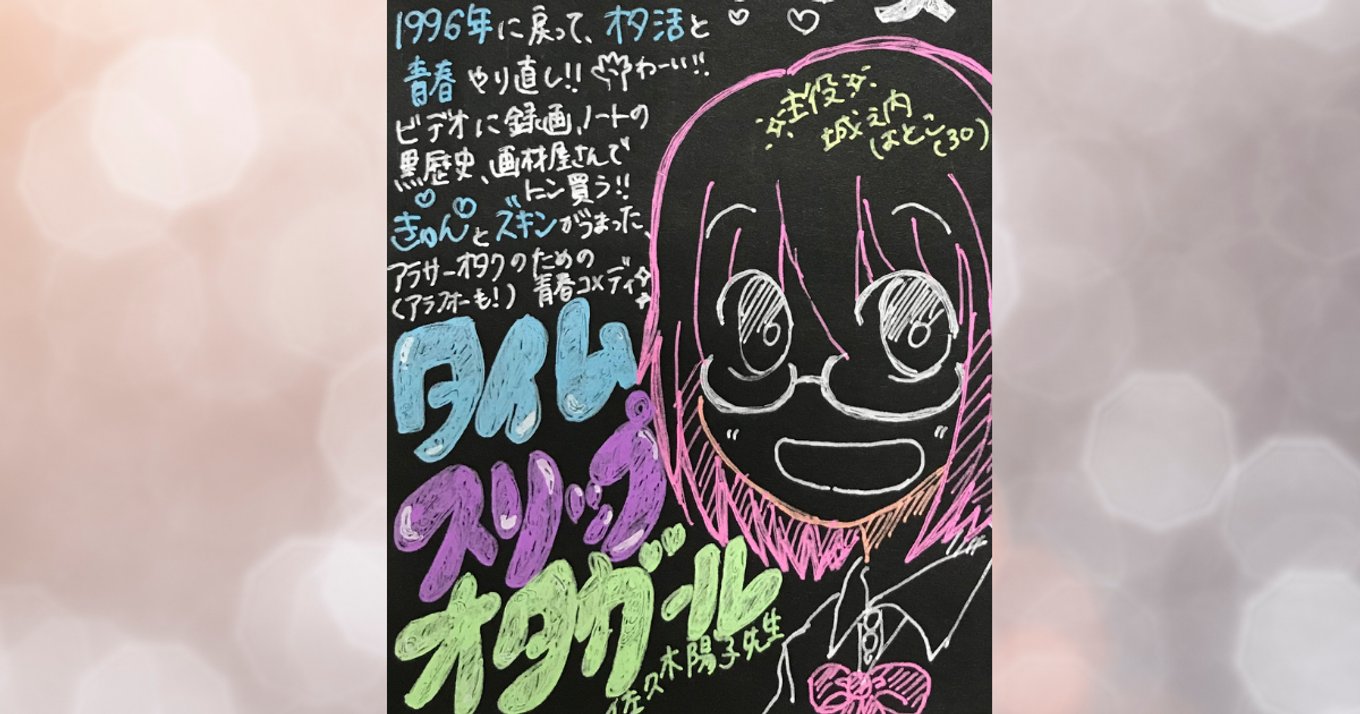 1996年に戻って、オタ活と
青春やり直し!! わーい!!
ビデオに録画、ノートの
黒歴史、画材屋さんで
トーン買う!!
きゅんとズキンがつまった、
アラサーオタクのための
(アラフォーも!) 青春コメディ
タイム
スリップ
オタガール
佐久木陽子先生
主役
城之内
はとこ(30)